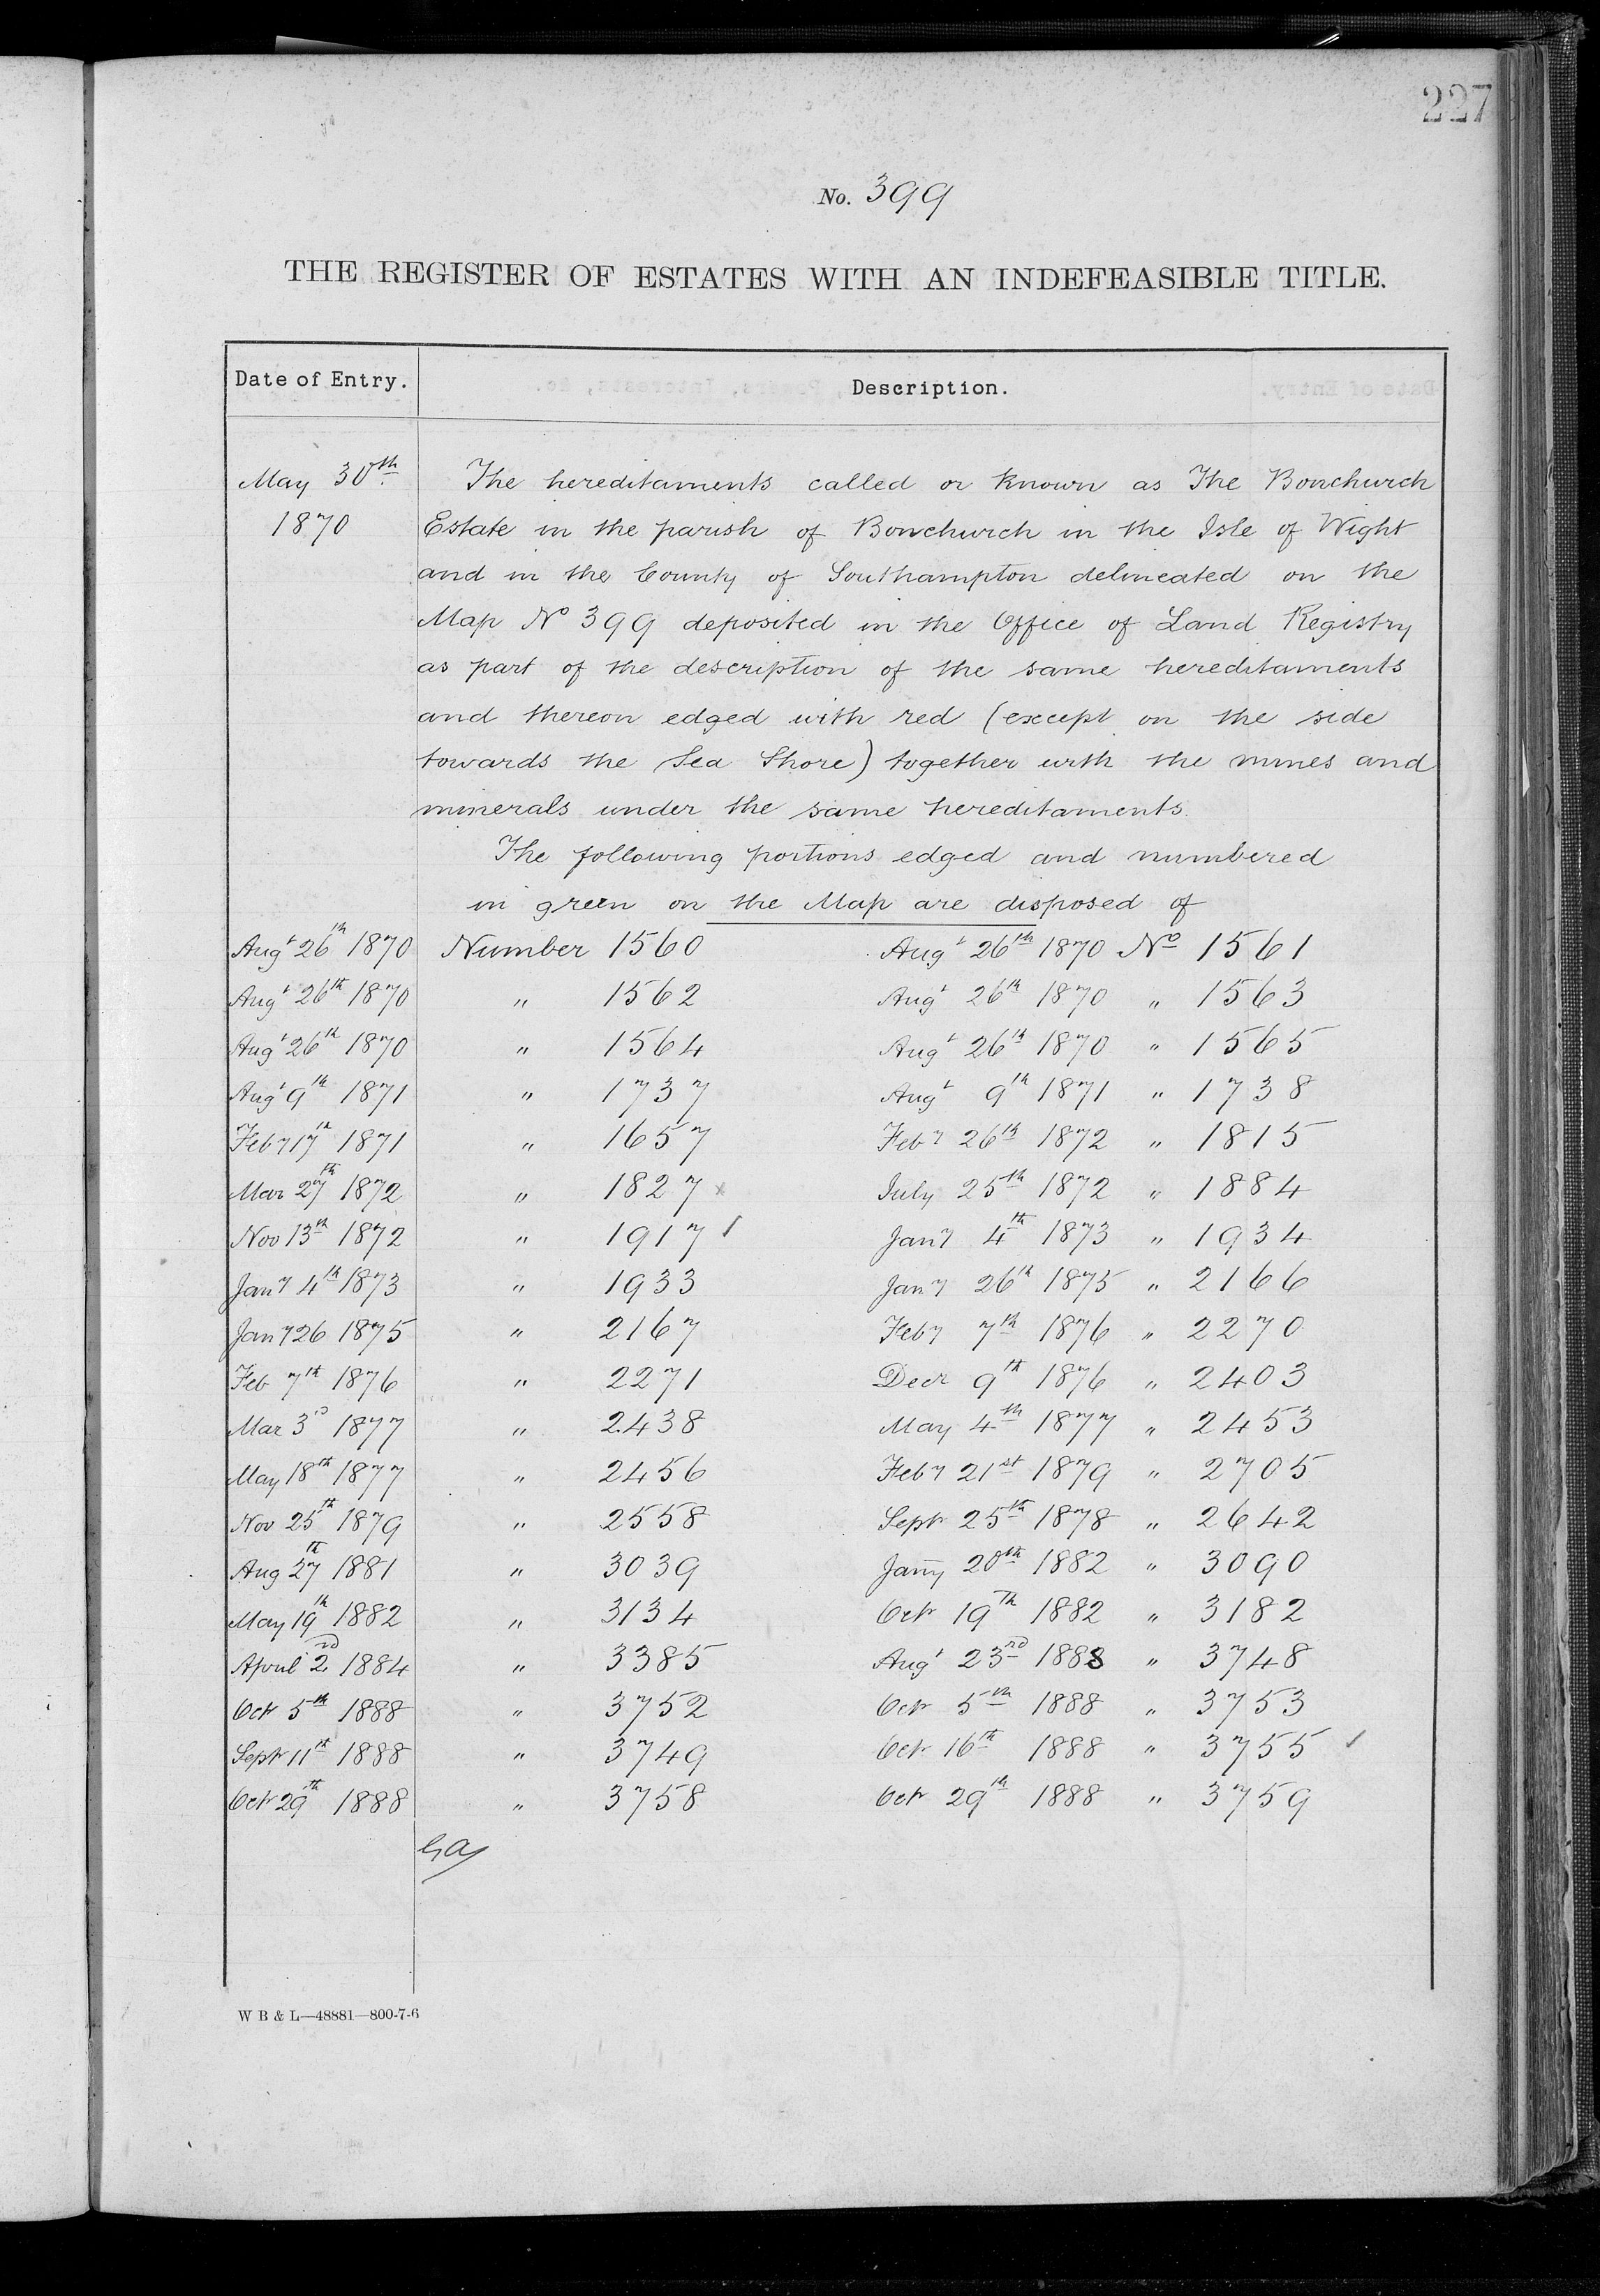 227
No. 399
THE REGISTER OF ESTATES WITH AN INDEFEASIBLE TITLE.
Date of Entry. Description.
May 30th The hereditaments called or known as The Bonchurch
1870 Estate in the parish of Bonchurch in the Isle of Wight
and in the County of Southampton delineated on the
Map No 399 deposited in the Office of Land Registry
as part of the description of the same hereditaments
and thereon edged with red (except on the side
towards the Sea Shore) together with the mines and
minerals under the same hereditaments.
The following portions edged and numbered
in green on the Map are disposed of
Augt 26th 1870 Number 1560 Augt 26th 1870 No 1561
Augt 26th 1870 " 1562 Augt 26th 1870 " 1563
Augt 26th 1870 " 1564 Augt 26th 1870 " 1565
Augt 9th 1871 " 1737 Augt 9th 1871 " 1738
Feby 17th 1871 " 1657 Feby 26th 1872 " 1815
Mar 27th 1872 " 1827 x July 25th 1872 " 1884
Nov 13th 1872 " 1917 / Jany 4th 1873 " 1934
Jany 4th 1873 " 1933 Jany 26th 1875 " 2166
Jany 26 1875 " 2167 Feby 7th 1876 " 2270
Feb 7th 1876 " 2271 Decr 9th 1876 " 2403
Mar 3rd 1877 " 2438 May 4th 1877 " 2453
May 18th 1877 " 2456 Feby 21st 1879 " 2705
Nov 25th 1879 " 2558 Sept 25th 1878 " 2642
Aug 27th 1881 " 3039 Jany 20th 1882 " 3090
May 19th 1882 " 3134 Oct 19th 1882 " 3182
April 2nd 1884 " 3385 Augt 23rd 1888 " 3748
Oct 5th 1888 " 3752 Oct 5th 1888 " 3753
Sept 11th 1888 " 3749 Oct 16th 1888 " 3755 /
Oct 29th 1888 " 3758 Oct 29th 1888 " 3759
W B & L—48881—800-7-6